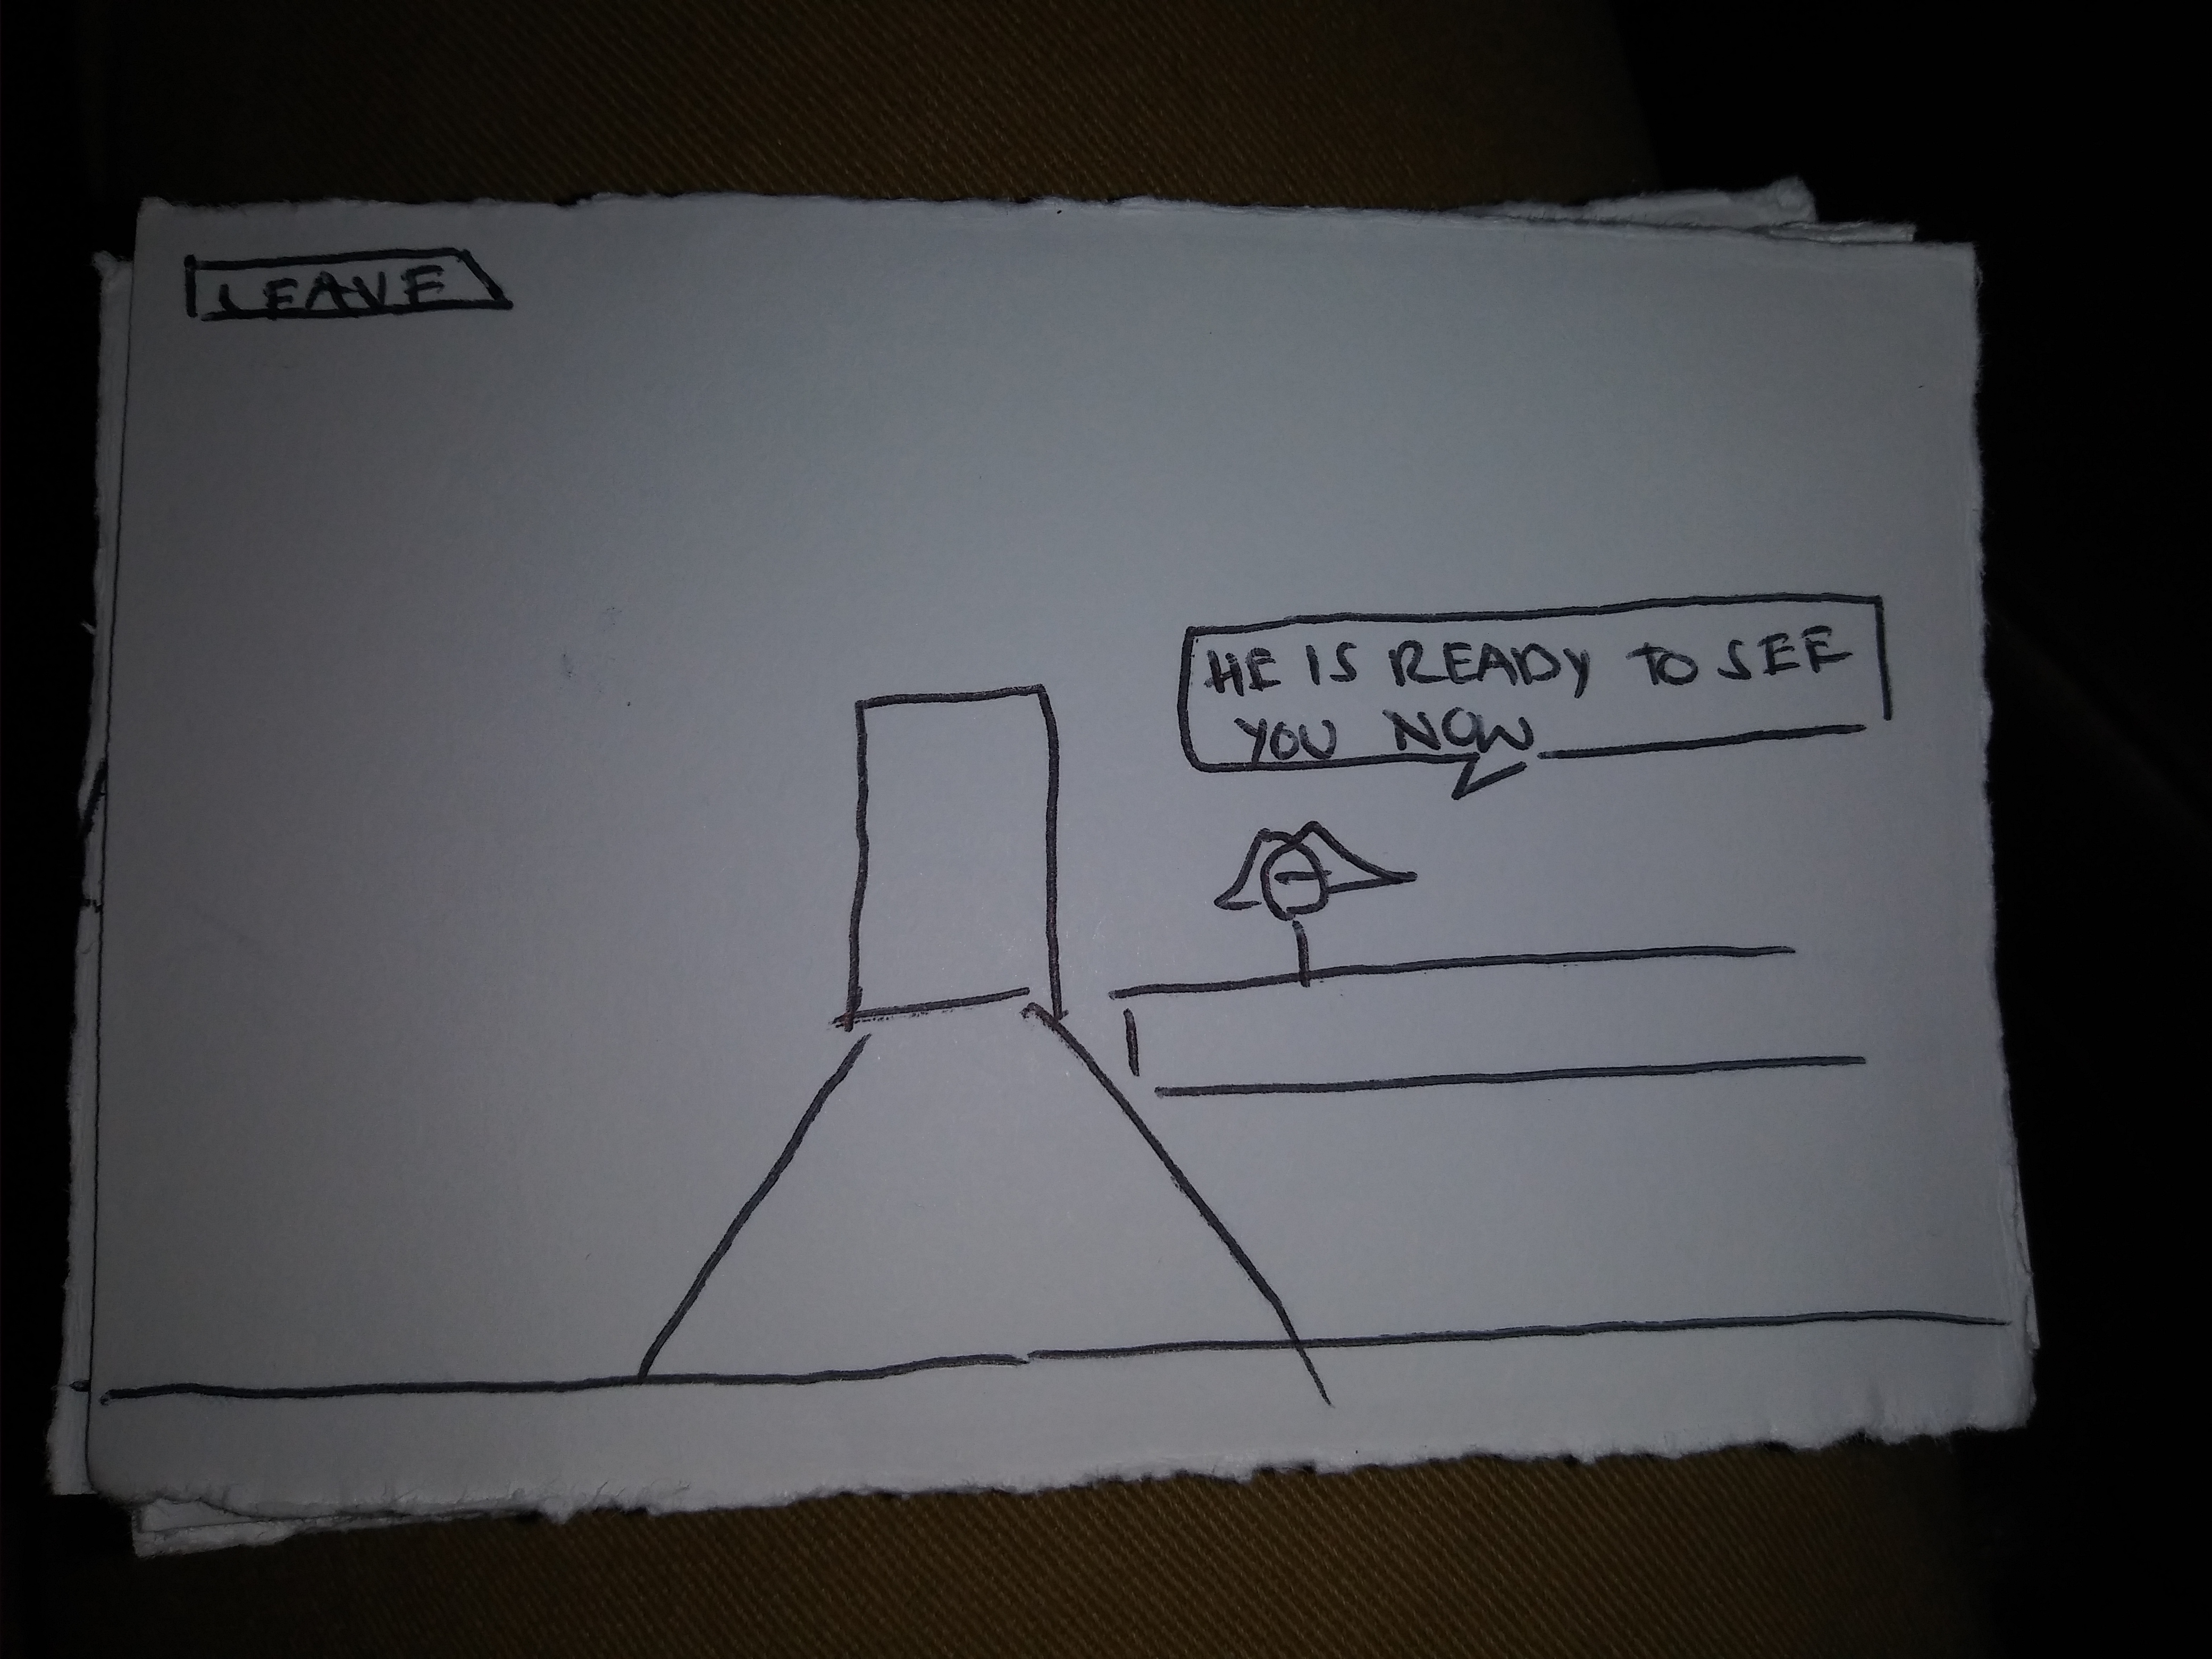 LEAVE
HE IS READY TO SEE
YOU NOW